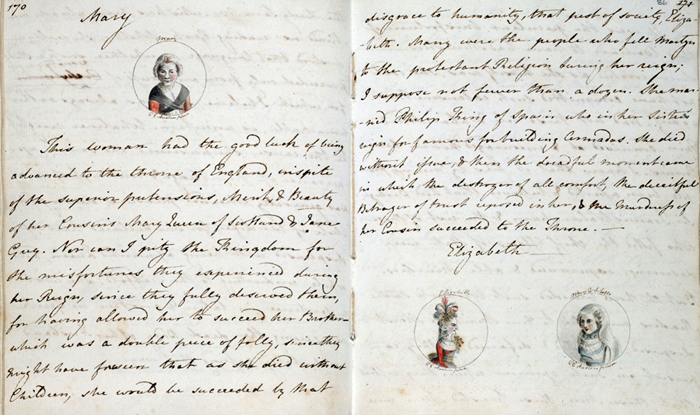 170
Mary
This woman had the good luck of being
advanced to the throne of England, inspite
of the superior pretensions, Merit, & Beauty
of her Cousins Mary Queen of Scotland & Jane
Grey. Nor can I pity the Kingdom for
the misfortunes they experienced during
her Reign, since they fully deserved them,
for having allowed her to succeed her Brother—
which was a double peice of folly, since they
might have foreseen that as she died without
Children, she would be succeeded by that
171
disgrace to humanity, that pest of society, Eliza-
-beth. Many were the people who fell Martyrs
to the protestant Religion during her reign;
I suppose not fewer than a dozen. She mar-
-ried Philip King of Spain who in her Sister's
reign for famous for building Armadas. She died
without issue, & then the dreadful moment came
in which the destroyer of all comfort, the deceitful
Betrayer of trust reposed in her, & the Murdress of
her Cousin succeeded to the Throne.—
Elizabeth—
Elizabeth
Mary Q. of Scots